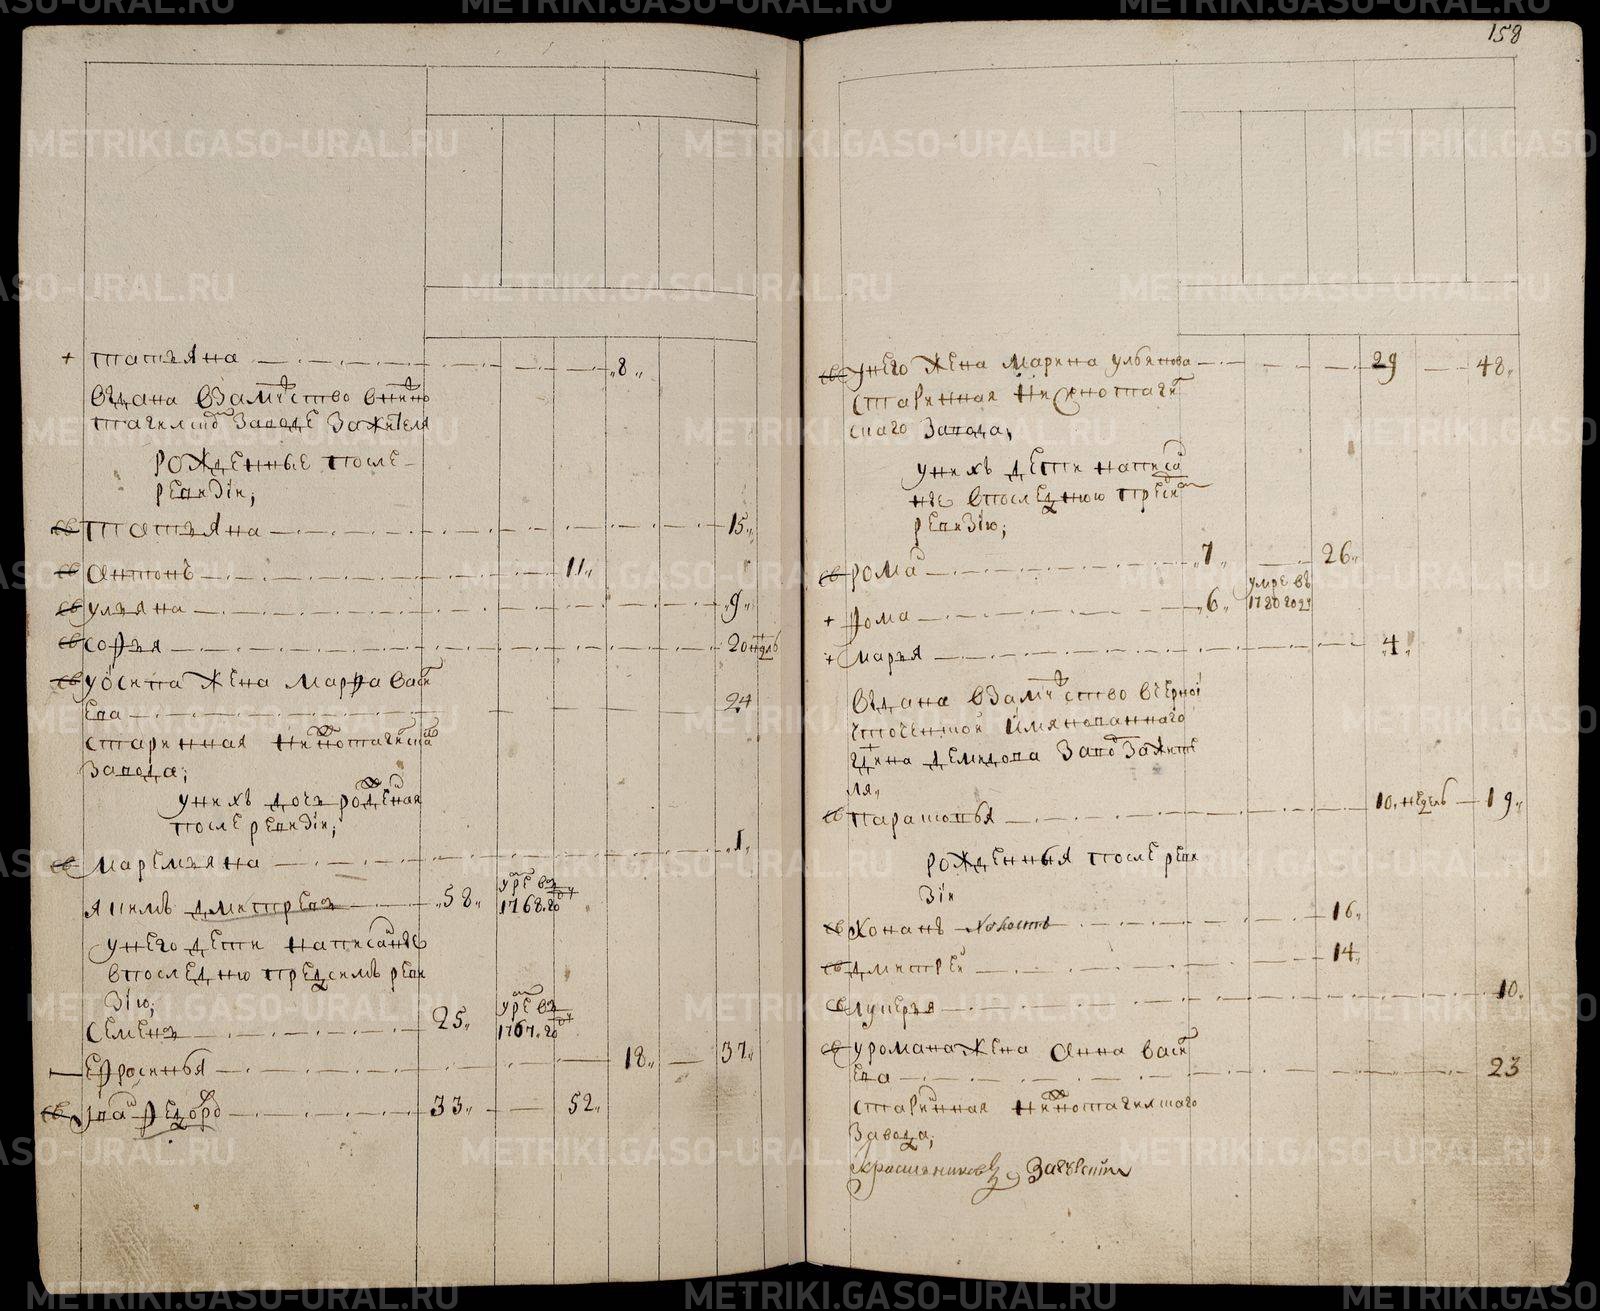 158
+ татьяна 8
выдана взамужство внижно
тагилском заводе зажителя
рожденные после
ревизiи;
св татьяна 15
св антонъ 11
св ульяна 9
св софья 20 недель
св уосипа жена марфа васил
ева 24
старинная нижнотагилскаго
завода;
унихъ дочь рожденная
после ревизiи;
св маремьяна 1
якимъ дмитреевъ 58 умре въ 1768 году
унего дети написанные
впоследнюю предсимъ реви
зiю;
семенъ 25 умре въ 1767 году
ефросинья 18 37
св иванъ федоровъ 33 52
св унего жена марина ульянова 29 48
старинная нижнотагил
скаго завода;
унихъ дети написан
ные впоследнюю предсим
ревизiю;
св романъ 7 26
+ фома 6 умре въ 1780 году
+ марья 4
выдана взамужство вчерно
источенской имянованнаго
гдина демидова завод зажите
ля
св парасковья 10 недель 19
рожденныя после реви
зiи
св кононъ холостъ 16
св дмитрей 14
св лукерья 10
св уромана жена анна васил
ева 23
старинная нижнотагилскаго
завода;
METRIKI.GASO-URAL.RU